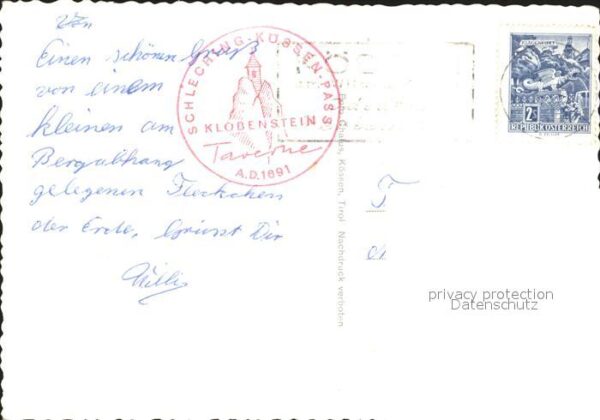 Einen schönen Gruß
von einem
kleinen am
Bergabhang
gelegenen Fleckchen
der Erde, Grüsst Dir
Willi
SCHLECHING-KÖSSEN-PASS
KLOBENSTEIN
Taverne
A.D.1691
KLAGENFURT
2S
REPUBLIK ÖSTERREICH
Kössen, Tirol Nachdruck verboten
privacy protection
Datenschutz